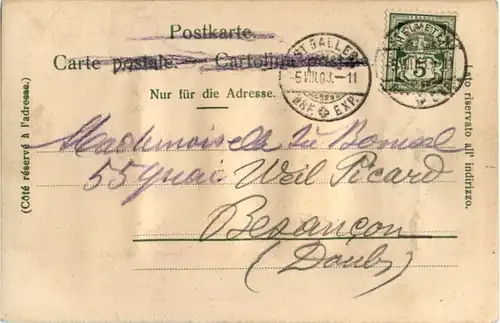 Postkarte.
Carte postale. — Cartolina postale.
Nur für die Adresse.
(Côté réservé à l'adresse.)
Lato riservato all' indirizzo.
ST. GALLEN
-5.VIII.03.-11
BRF. EXP.
5
Mademoiselle
55 quai Weil Picard
Besançon
(Doubs)